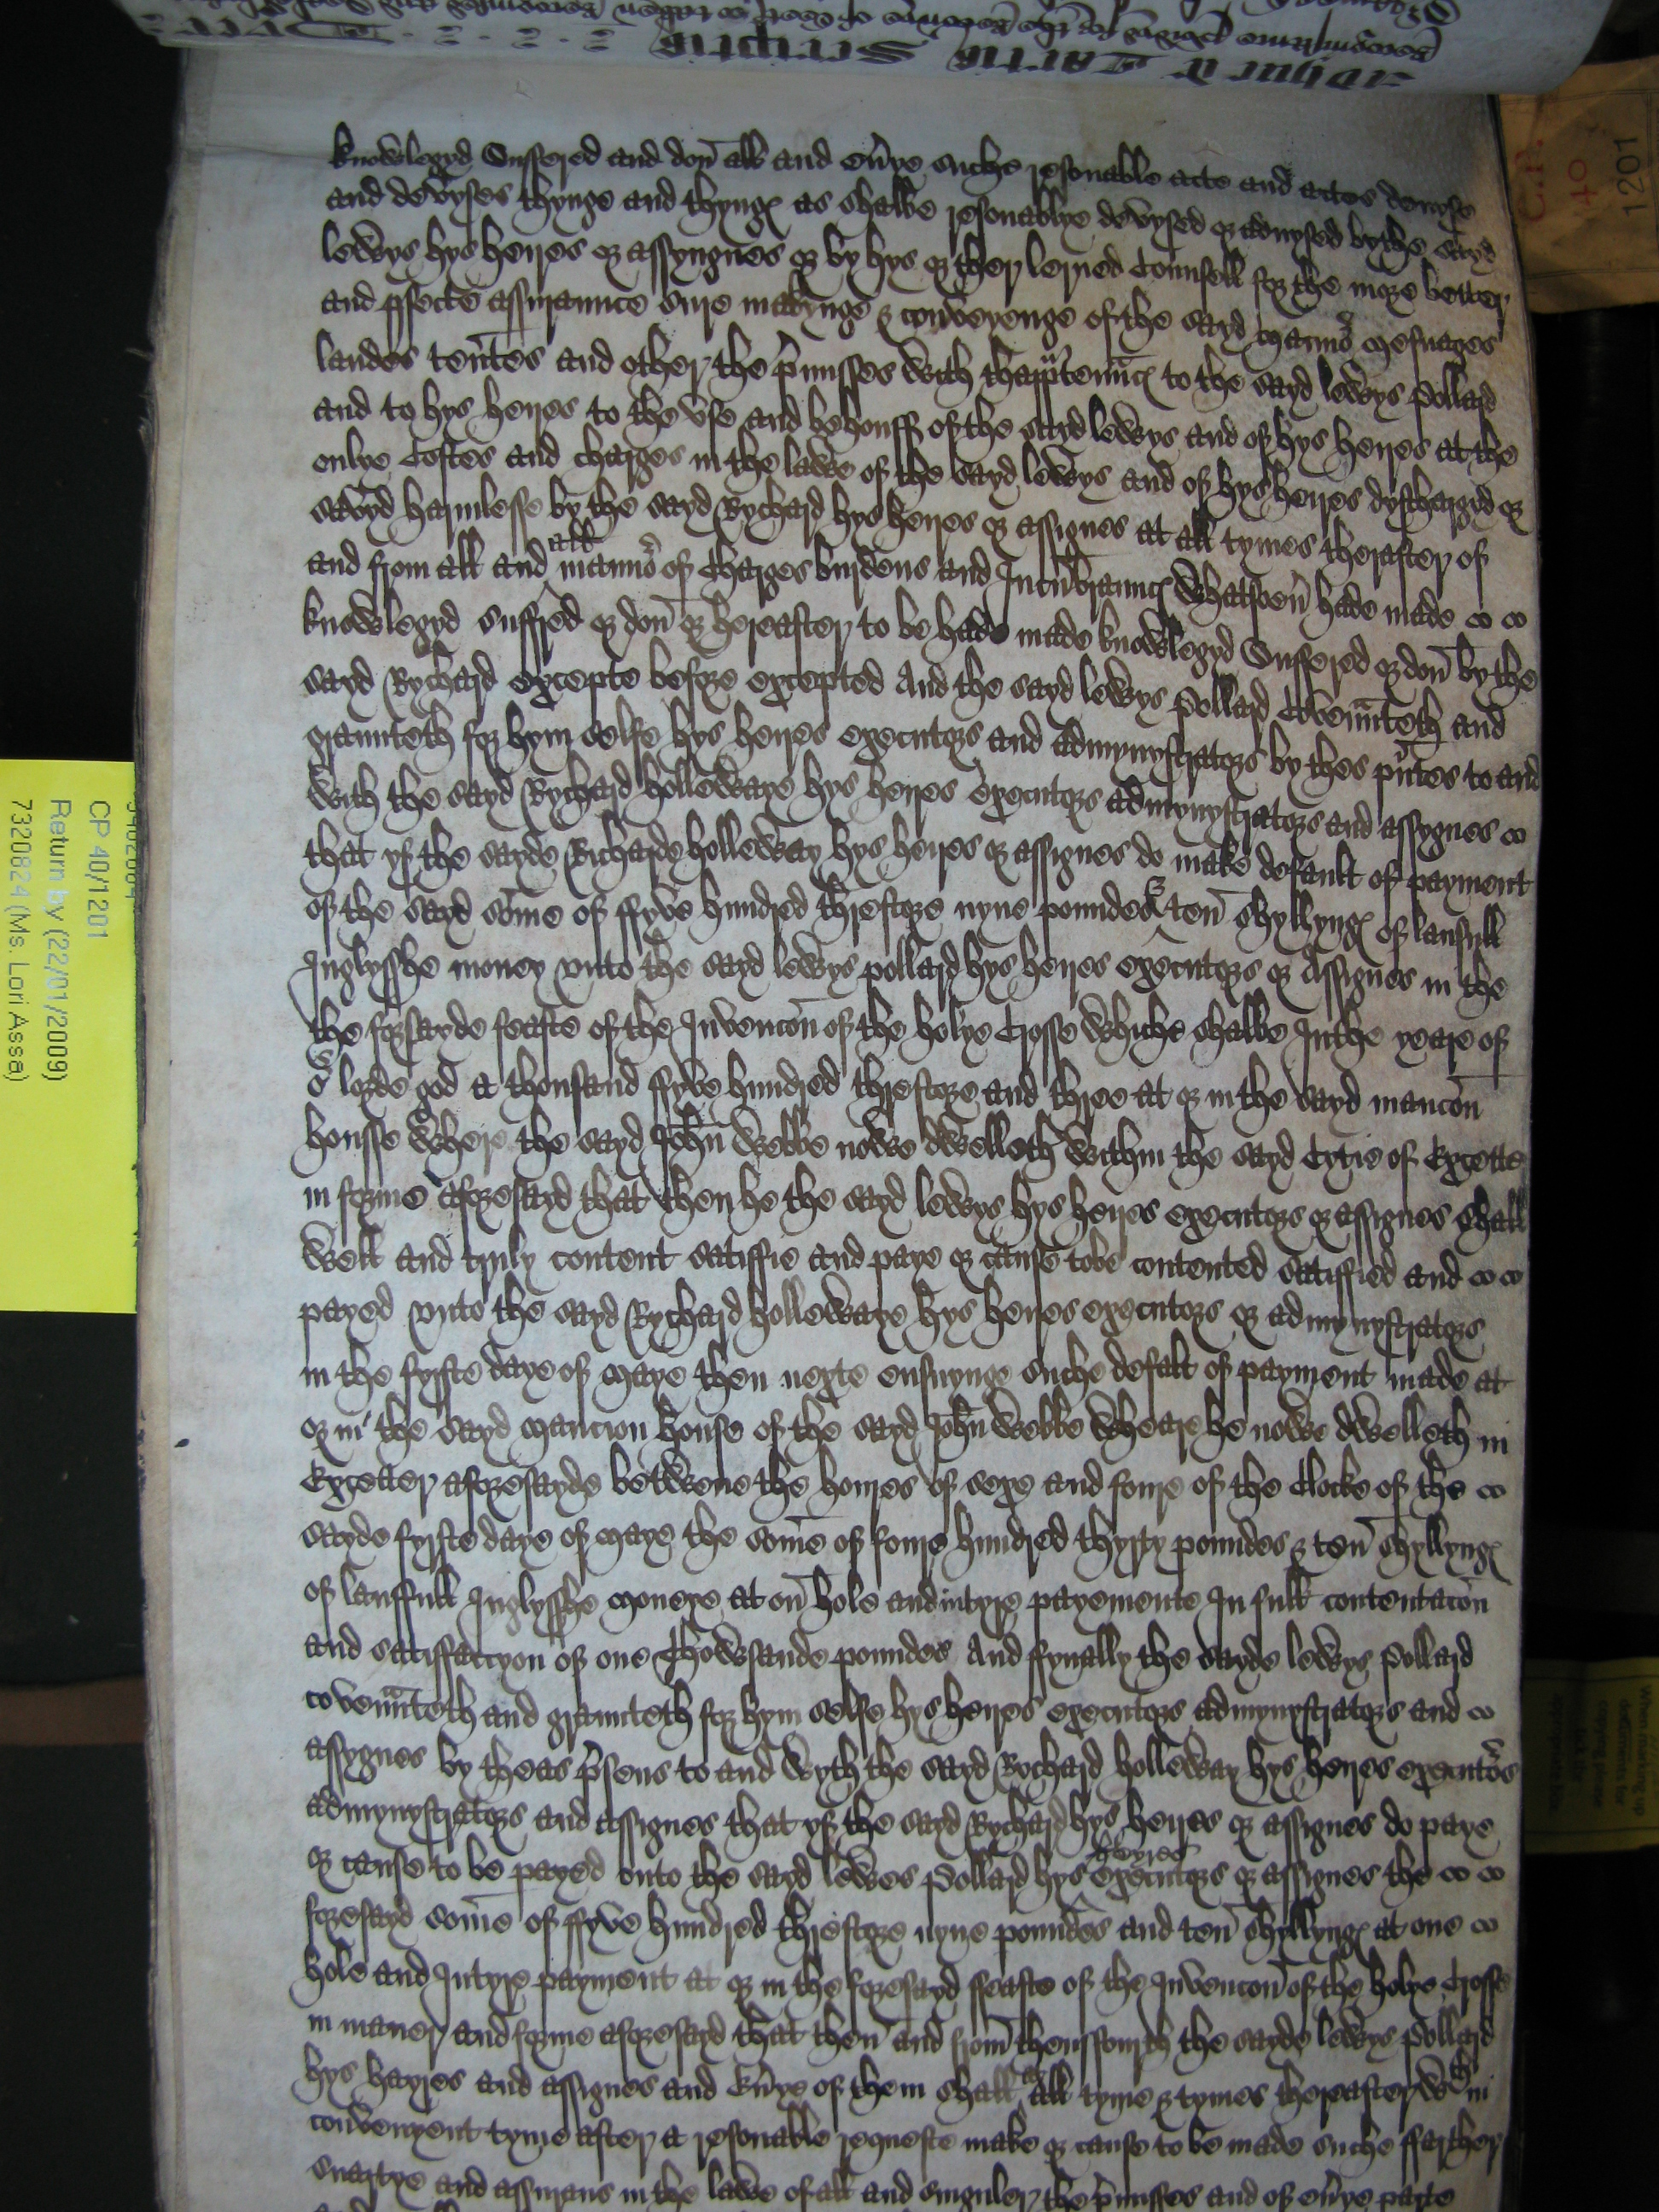 knowlegyd Suffered and don all and eu'ye suche resonable acte and actes devyse
and devyses thynge and thynges as shalbe resonablye devysed or advysed by the sayd
lewys hys heyres or assyngnes or by hys or ther lerned Counsell for the more better
and p'fecte assuraunce sure makynge & conveyenge of the sayd Mannor Mesuages
landes ten'tes and other the p'misses with thapp'ten'nc to the sayd lewys Pollard
and to hys heyres to the vse and behouff of the sayd lewys and of hys heyres at the
onlye Costes and charges in the lawe of the sayd lewys and of hys heyres dyschargyd or
savyd harmlesse by the sayd Rychard hys heyres or assignes at all tymes therafter of
and from all and all mann'o of Charges burdens and Incu'braunc whatsoeu' hade made
knowlegyd suffred or don or hereafter to be hade made knowlegyd Suffered or don by the
sayd Rychard excepte before excepted And the sayd lewys Pollard Coven'nteth and
graunteth for hym selfe hys heyres executors and admynystrators by thes p'ntes to and
with the sayd Rychard hollewaye hys heyres executors admynystrators and assygnes
that yf the sayde Richarde holleway hys heyres or assignes do make default of payment
of the sayd some of ffyve hundred threscore nyne poundes & ten shyllynges of laufull
Inglysshe money vnto the sayd lewys pollard hys heyres executors or Assignes in the
the forsayde feaste of the Invencon of the holye Crosse whiche shalbe In the yeare of
or lorde god a thousand ffyve hundred threscore and three at or in the sayd mancon
housse where the sayd John webbe nowe dwelleth within the sayd Cytie of Excetter
in forme aforesayd that then he the sayd lewys hys heyres executors or assignes shall
well and truly content satiffie and paye or cause tobe contented satiffied and
payed vnto the sayd Rychard hollewaye hys heyres executors or admynystrators
in the fyrste daye of Maye then nexte ensuynge suche defalt of payment made at
or in the sayd Mancion house of the sayd John webbe wheare he nowe dwelleth in
Excetter aforesayde betwene the houres of sexe and foure of the Clocke of the
sayde fyrste daye of Maye the some of foure hundred thyrty poundes & ten shyllynges
of lauffull Inglysshe Moneye at on hole and intyre payemente In full contentacon
and satisfactyon of one Thowsande poundes And ffynally the sayde lewys Pollard
coven'nteth and graunteth for hym selfe hys heyres executors admynystrators and
assygnes by theas p'sens to and wyth the sayd Rychard holleway hys heyres executors
admynystrators and assignes that yf the sayd Rychard hys heyres or assignes do paye
or cause to be payed vnto the sayd lewes Pollard hys heyres executors or assignes the
foresayd some of ffyve hundred threscore nyne poundes and ten shyllynges at one
hole and Intyre payment at or in the foresayd ffeaste of the Invencon of the holye Crosse
in maner and forme aforesayd that then and from thensfourth the sayde lewys Pollard
hys hayres and assignes and Eu'ye of them shall at all tyme & tymes thereafter wth in
convenyent tyme after a resonable requeste make or cause to be made suche ffarther
suartye and assurans in the lawe of all and singuler the p'misses and of eu'ye parte
C.P.
40
1201
CP 40/1201
Return by (22/01/2009)
7320824 (Ms. Lori Assa)